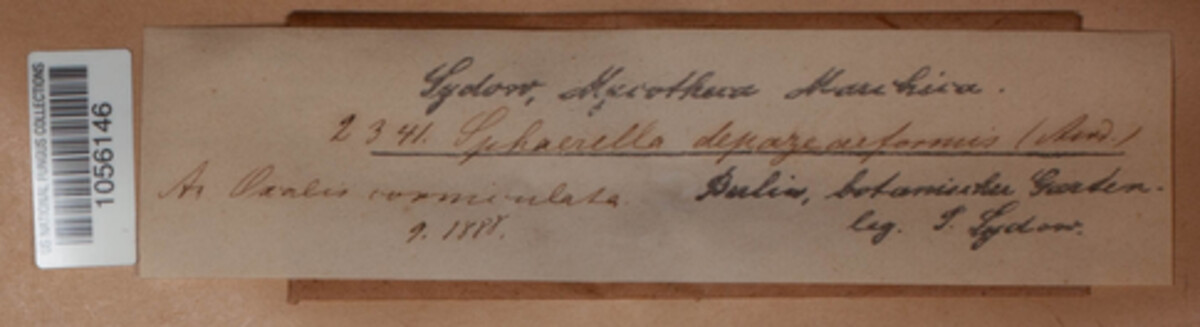 US NATIONAL FUNGUS COLLECTIONS
1056146
Sydow, Mycotheca Marchica.
2341. Sphaerella depazeaeformis (Awd.)
Az Oxalis corniculata.
Berlin, botanischer Garten.
9. 1888.
leg. P. Sydow.